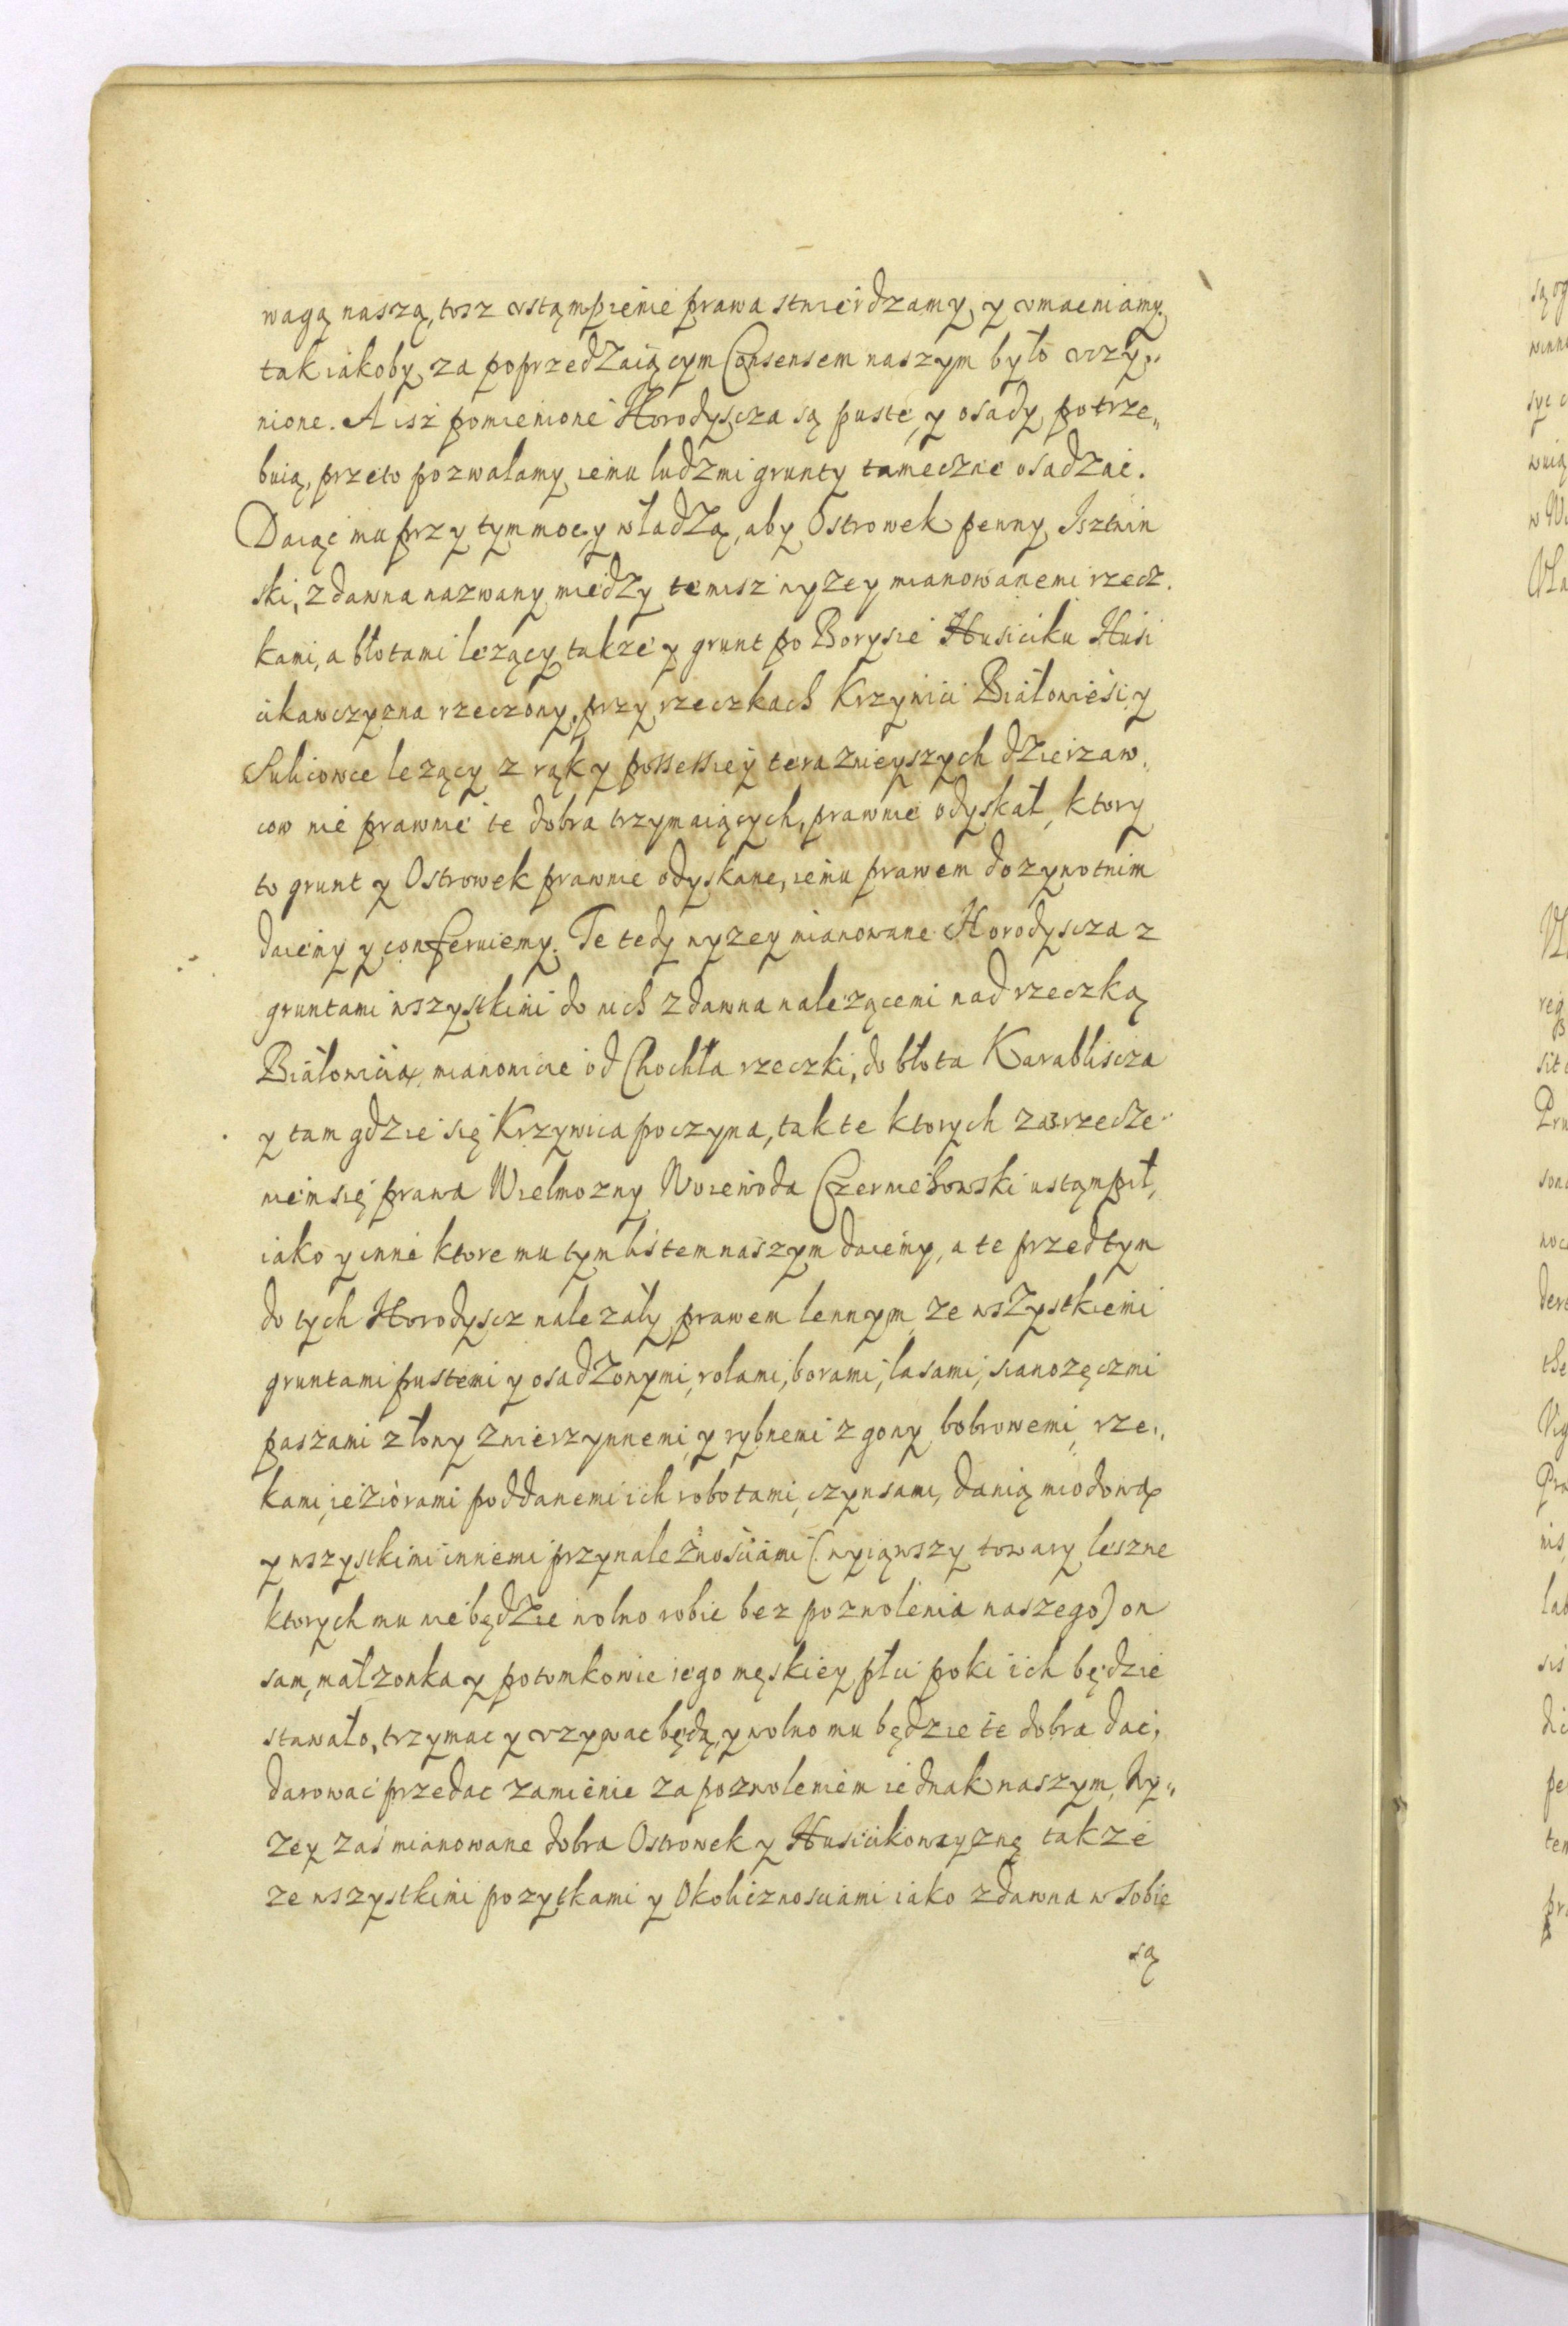 wagą naszą, tosz vstąmpienie prawa stwierdzamy y vmacniamy.
tak iakoby za poprzedzaiącym Consensem naszym było vczy„
nione. A isz pomienione Horodyscza są puste, y osady potrze„
buią, przeto pozwalamy iemu ludzmi grunty tameczne osadzać.
Daiąc mu przy tym moc y władzą, aby Ostrowek pewny Isztwin
ski, zdawna nazwany miedzy temisz wyzey mianowanemi rzecz.
kami, a błotami lezący, takze y grunt po Borysie Husiciku Husi
cikawczyzna rzeczony, przy rzeczkach Krzywici Białowiesi, y
Sulicowce lezący z rąk y possessiey teraznieyszych dzierzaw„
cow nie prawnie te dobra trzymaiących, prawnie odyskał, ktory
to grunt y Ostrowek prawnie odyskane, iemu prawem dozywotnim
daiemy y conferuiemy. Te tedy wyzey mianowane Horodyscza z
gruntami wszystkimi do nich zdawna nalezącemi nad rzeczką
Białowicią, mianowicie od Chochła rzeczki, do błota Karabliscza
y tam gdzie się Krzywica poczyna, tak te ktorych zawrzecze„
niem się prawa Wielmozny Woiewoda Czerniehowski ustąmpił,
iako y inne ktore mu tym listem naszym daiemy, a te przedtym
do tych Horodyscz nalezały prawem lennym, ze wszystkiemi
gruntami pustemi y osadzonymi, rolami, borami, lasami, sianozęczmi
paszami z łony zwierzynnemi, y rybnemi z gony bobrowemi, rze„
kami, ieziorami poddanemi ich robotami, czynsami, danią miodową
y wszystkimi innemi przynaleznościami (wyiąwszy towary leszne
ktorych mu nie będzie wolno robic bez pozwolenia naszego) on
sam, małzonka y potomkowie iego męskiey płci poki ich będzie
stawało, trzymac y vzywac będą, y wolno mu będzie te dobra dac,
darowac przedac zamienic za pozwoleniem iednak naszym, Wy„
zey zaś mianowane dobra Ostrowek y Husicikowzyznę takze
ze wszystkimi pozytkami y Okolicznosciami iako zdawna w sobie
są